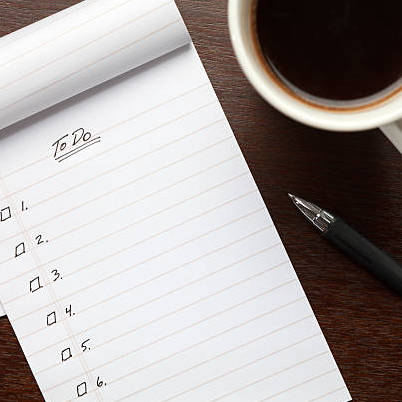 To Do
1.
2.
3.
4.
5.
6.